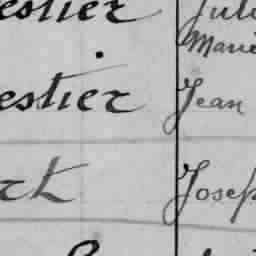 estier Jule
Marie
estier Jean
rt Josep